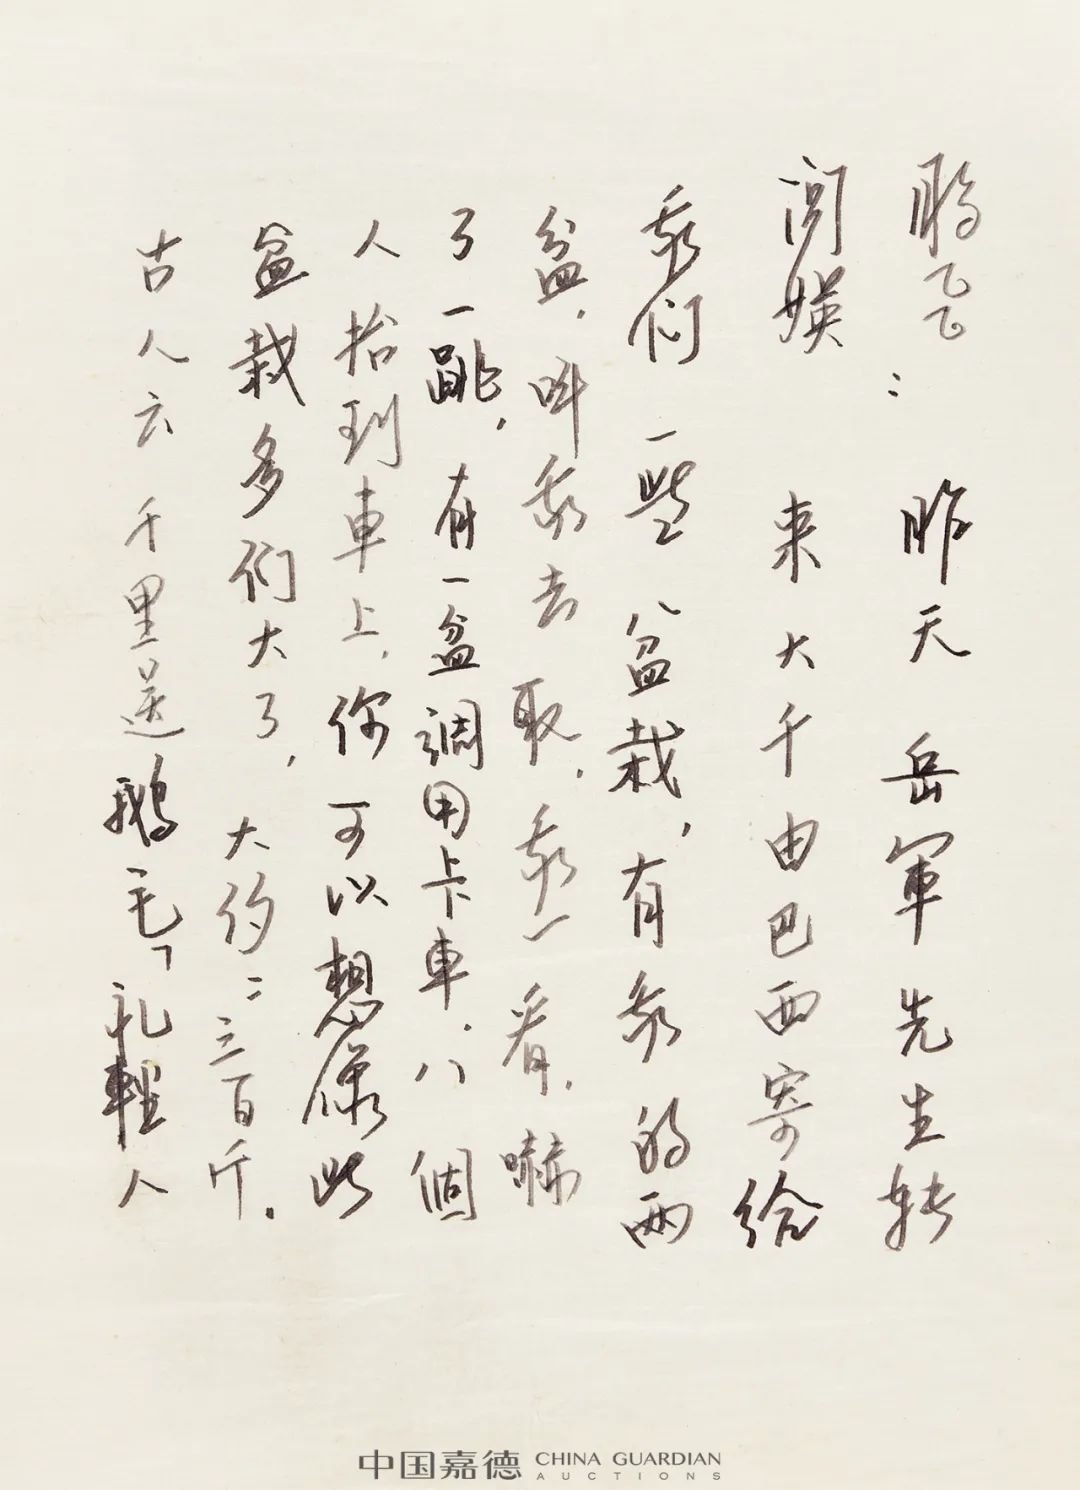 鹏飞：昨天岳軍先生转
阅媖 来大千由巴西寄给
我们一些盆栽，有我的两
盆，叫我去取，我一看，嚇
了一跳，有一盆調用卡車，八個
人抬到車上，你可以想像此
盆栽多们大了，大约二三百斤。
古人云千里送鵝毛「礼輕人
中国嘉德 CHINA GUARDIAN
AUCTIONS